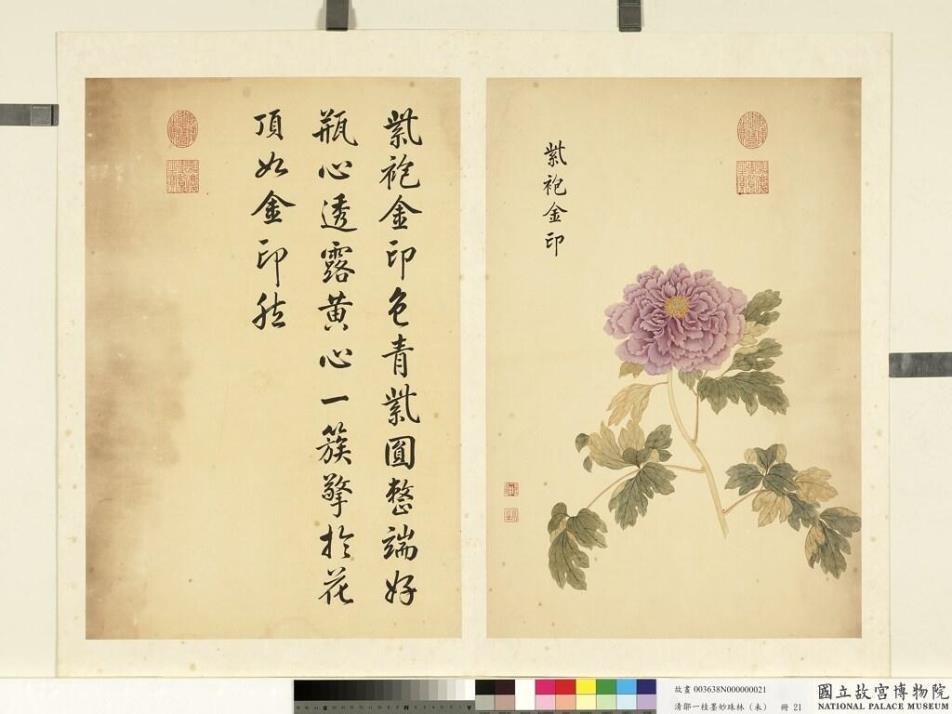 紫袍金印
紫袍金印色青紫圓整端好
瓶心透露黃心一簇擎於花
頂如金印然
故畫 003638N000000021
清鄒一桂墨妙珠林（未） 冊 21
國立故宮博物院
NATIONAL PALACE MUSEUM